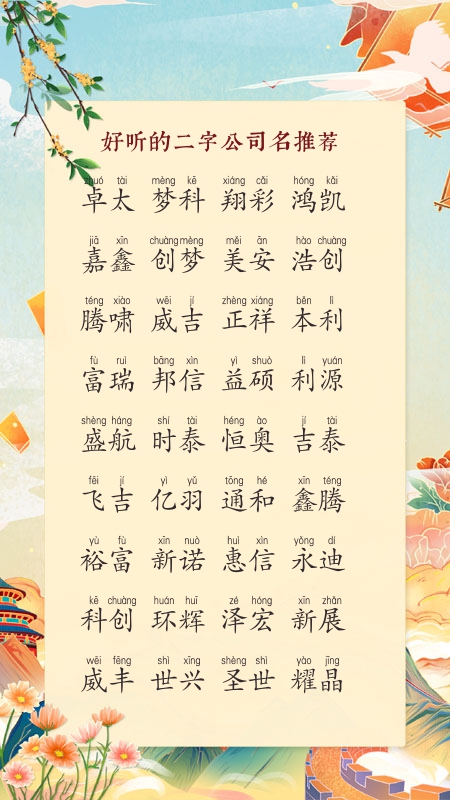 好听的二字公司名推荐
zhuó tài mèng kē xiáng cǎi hóng kǎi
卓太 梦科 翔彩 鸿凯
jiā xīn chuàng mèng měi ān hào chuàng
嘉鑫 创梦 美安 浩创
téng xiào wēi jí zhèng xiáng běn lì
腾啸 威吉 正祥 本利
fù ruì bāng xìn yì shuò lì yuán
富瑞 邦信 益硕 利源
shèng háng shí tài héng ào jí tài
盛航 时泰 恒奥 吉泰
fēi jí yì yǔ tōng hé xīn téng
飞吉 亿羽 通和 鑫腾
yù fù xīn nuò huì xìn yǒng dí
裕富 新诺 惠信 永迪
kē chuàng huán huī zé hóng xīn zhǎn
科创 环辉 泽宏 新展
wēi fēng shì xīng shèng shì yào jīng
威丰 世兴 圣世 耀晶